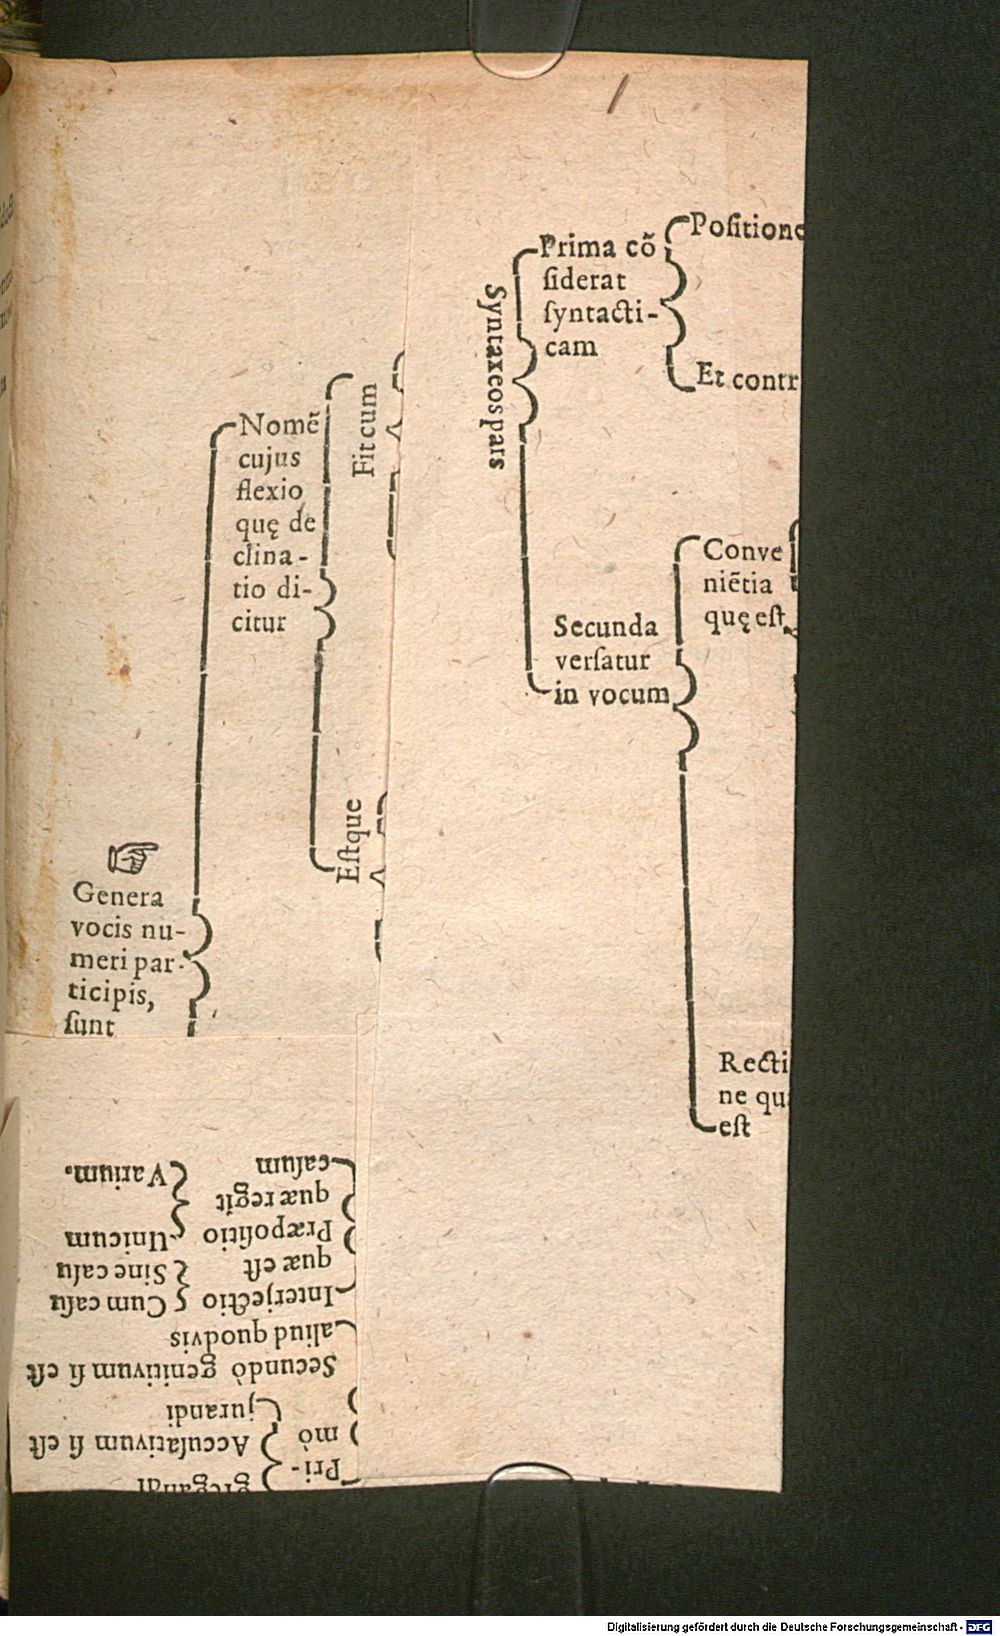 Syntaxcospars
Prima cõ
ſiderat
ſyntacti-
cam
Poſitione
Et contr
Secunda
verſatur
in vocum
Conve
niẽtia
quę eſt
Recti
ne qu
eſt
Genera
vocis nu-
meri par-
ticipis,
ſunt
Nomẽ
cujus
flexio
quę de
clina-
tio di-
citur
Fit cum
Eſtque
Pri-
mò
gregandi
Accuſativum ſi eſt
jurandi
Secundò genitivum ſi eſt
aliud quodvis
Interjectio
quæ eſt
Cum caſu
Sine caſu
Præpoſitio
quæ regit
caſum
Unicum
Varium.
Digitalisierung gefördert durch die Deutsche Forschungsgemeinschaft - DFG